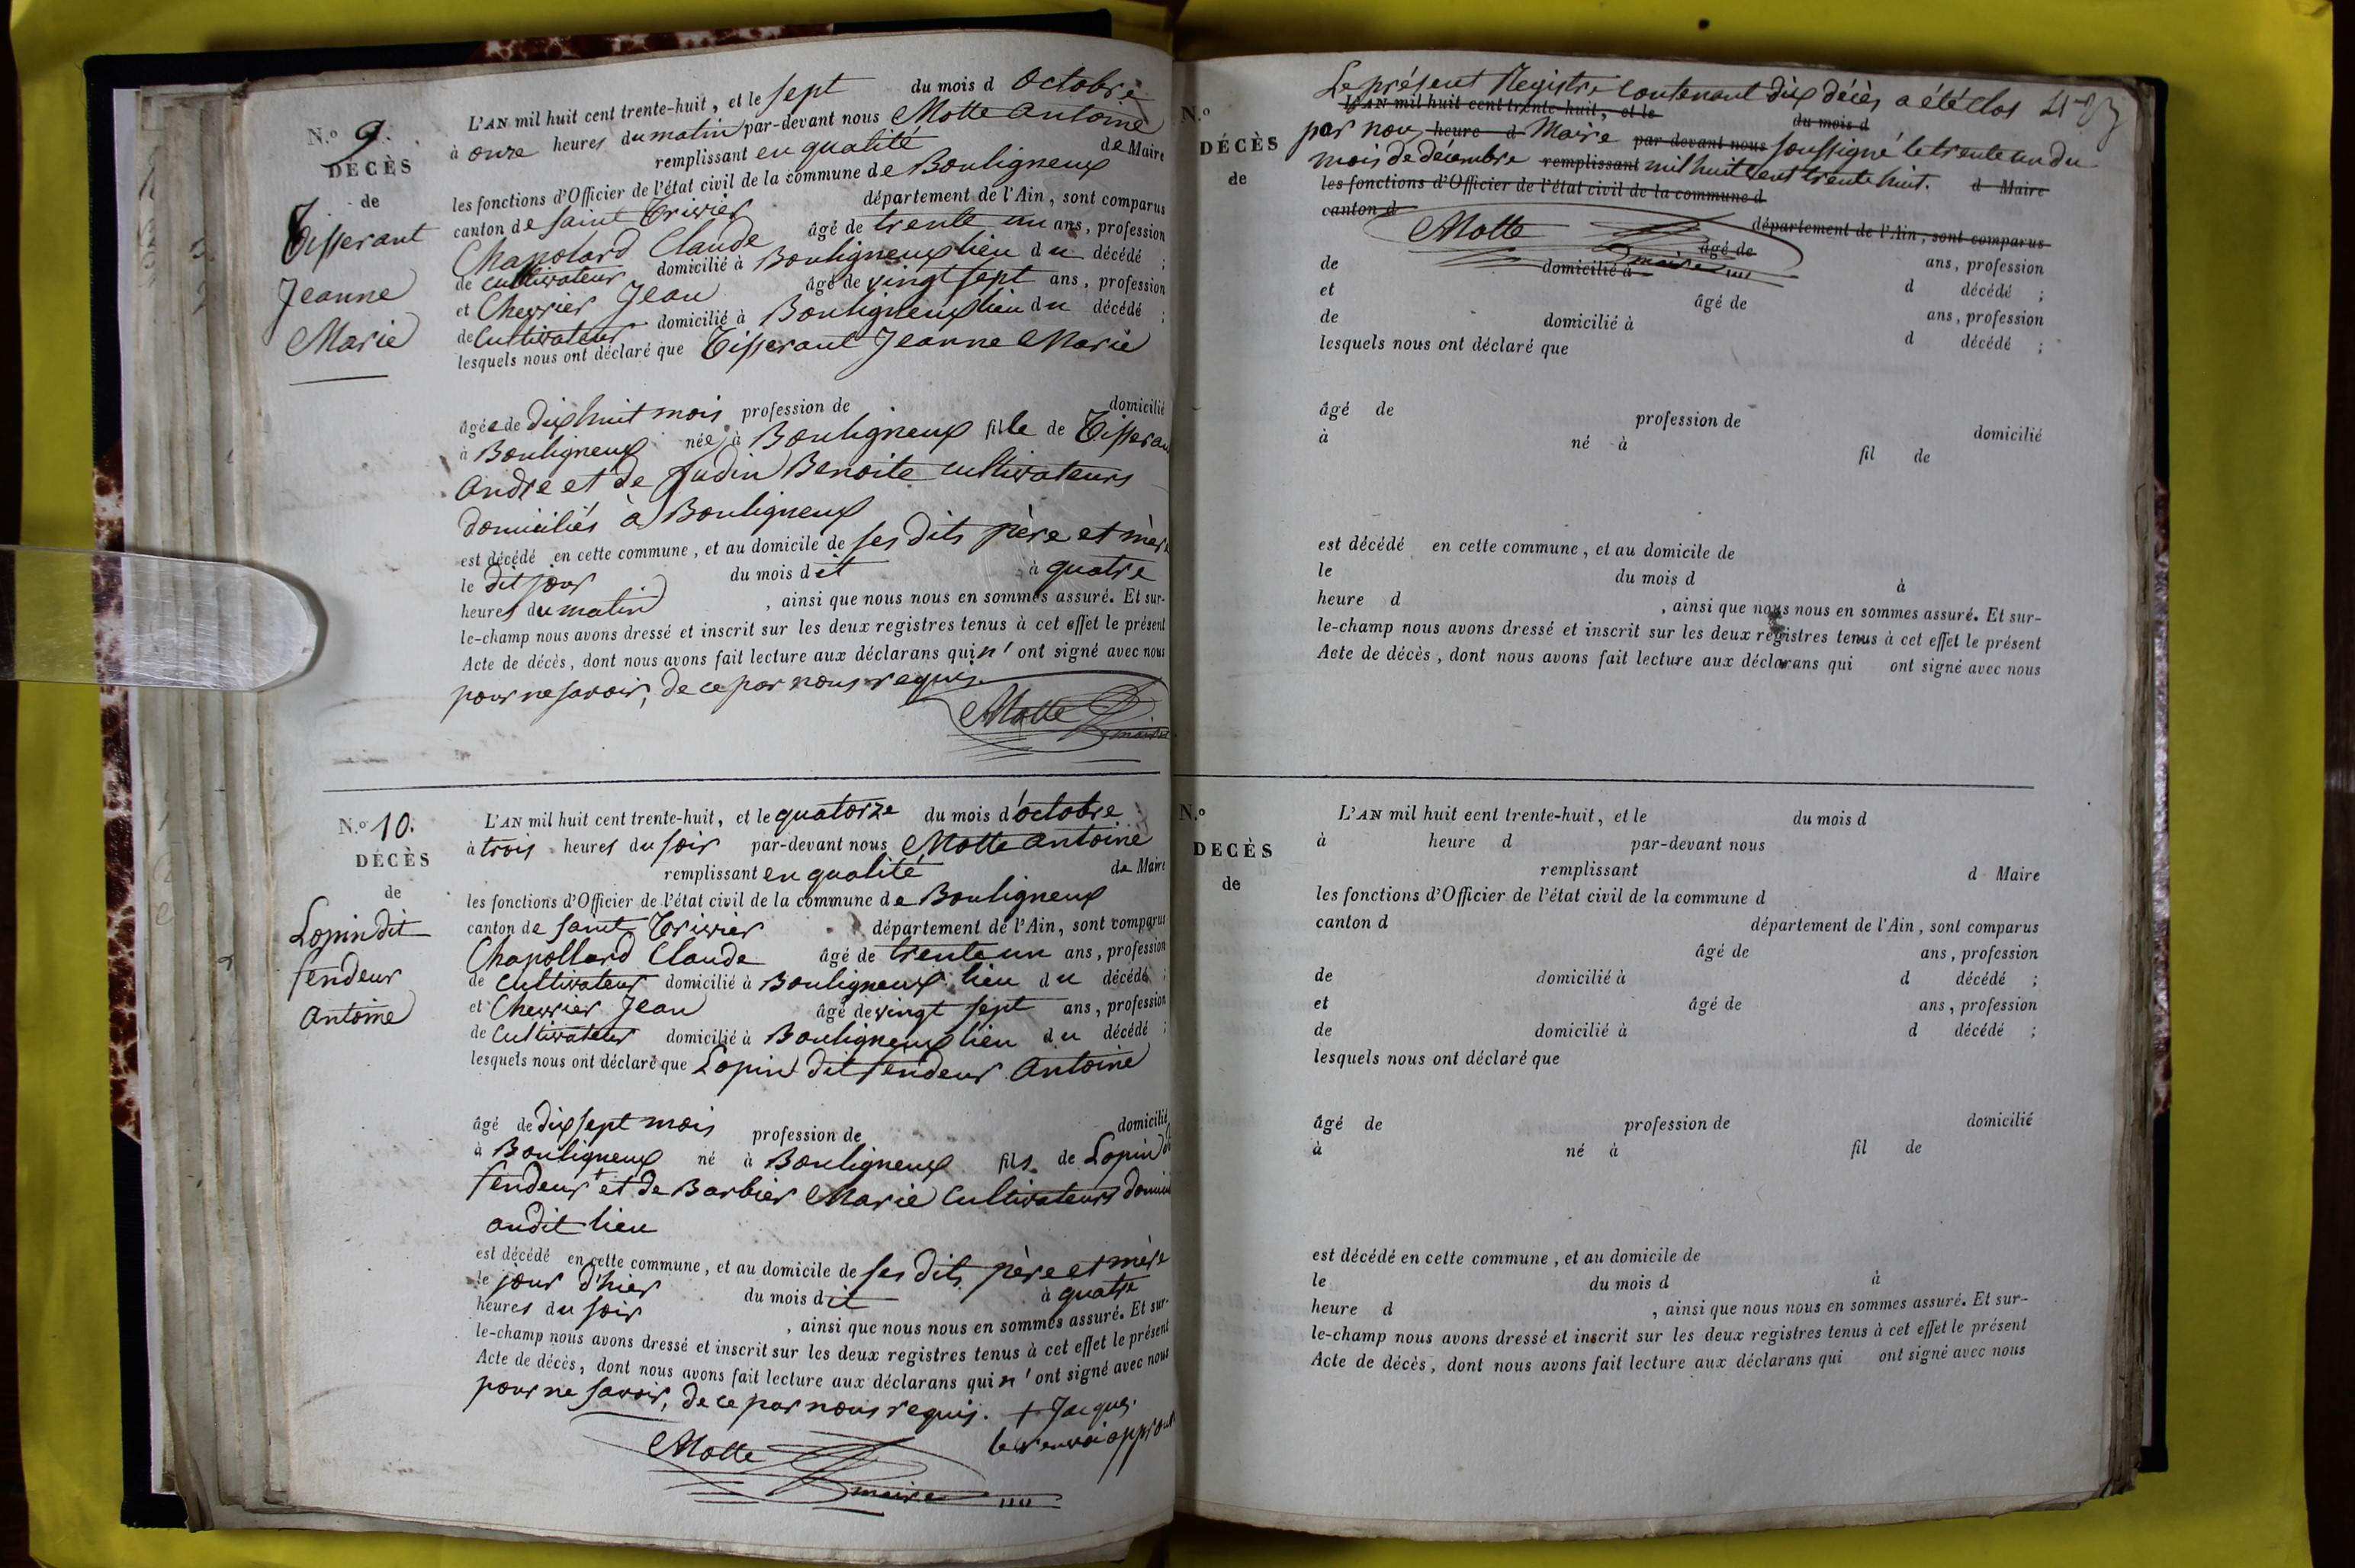 N.o 9.
DÉCÈS
de
Tisserant
Jeanne
Marie
L'AN mil huit cent trente-huit, et le sept du mois d Octobre
à onze heures du matin par-devant nous Motte Antoine
remplissant en qualité de Maire
les fonctions d'Officier de l'état civil de la commune de Bouligneux
canton de Saint Trivier département de l'Ain, sont comparus
Chapolard Claude âgé de trente un ans, profession
de cultivateur domicilié à Bouligneux lieu du décédé ;
et Chevrier Jean âgé de vingt sept ans, profession
de Cultivateur domicilié à Bouligneux lieu du décédé ;
lesquels nous ont déclaré que Tisserant Jeanne Marie
âgée de dix huit mois profession de domicilié
à Bouligneux née à Bouligneux fille de Tisseran
André et de Judin Benoite cultivateurs
domiciliés à Bouligneux
est décédé en cette commune, et au domicile de ses dits père et mère
le dit jour du mois dit à quatre
heures du matin , ainsi que nous nous en sommes assuré. Et sur-
le-champ nous avons dressé et inscrit sur les deux registres tenus à cet effet le présent
Acte de décès, dont nous avons fait lecture aux déclarans qui n'ont signé avec nous
pour ne savoir, de ce par nous requis.
Motte
maire
N.o 10.
DÉCÈS
de
Lopin dit
fendeur
Antoine
L'AN mil huit cent trente-huit, et le quatorze du mois d'octobre
à trois heures du soir par-devant nous Motte Antoine
remplissant en qualité de Maire
les fonctions d'Officier de l'état civil de la commune de Bouligneux
canton de Saint Trivier département de l'Ain, sont comparus
Chapollard Claude âgé de trente un ans, profession
de Cultivateur domicilié à Bouligneux lieu du décédé ;
et Chevrier Jean âgé de vingt sept ans, profession
de Cultivateur domicilié à Bouligneux lieu du décédé ;
lesquels nous ont déclaré que Lopin dit fendeur Antoine
âgé de dix sept mois profession de domicilié
à Bouligneux né à Bouligneux fils de Lopin dit
fendeur + et de Barbier Marie Cultivateurs domici
audit lieu
est décédé en cette commune, et au domicile de ses dits père et mère
le jour d'hier du mois dit à quatre
heures du soir , ainsi que nous nous en sommes assuré. Et sur-
le-champ nous avons dressé et inscrit sur les deux registres tenus à cet effet le présent
Acte de décès, dont nous avons fait lecture aux déclarans qui n'ont signé avec nous
pour ne savoir, de ce par nous requis. + Jacques.
le renvoi approuvé
Motte
maire
Le présent Registre contenant dix décès a été clos
L'AN mil huit cent trente-huit, et le du mois d
par nous heure d Maire par-devant nous soussigné le trente un du
mois de décembre remplissant mil huit cent trente huit. d Maire
N.o
DÉCÈS
de
les fonctions d'Officier de l'état civil de la commune d
canton d département de l'Ain, sont comparus
Motte
maire
âgé de ans, profession
de domicilié à d décédé ;
et âgé de ans, profession
de domicilié à d décédé ;
lesquels nous ont déclaré que
âgé de profession de domicilié
à né à fil de
est décédé en cette commune, et au domicile de
le du mois d à
heure d , ainsi que nous nous en sommes assuré. Et sur-
le-champ nous avons dressé et inscrit sur les deux registres tenus à cet effet le présent
Acte de décès, dont nous avons fait lecture aux déclarans qui ont signé avec nous
N.o
DECÈS
de
L'AN mil huit cent trente-huit, et le du mois d
à heure d par-devant nous
remplissant d Maire
les fonctions d'Officier de l'état civil de la commune d
canton d département de l'Ain, sont comparus
âgé de ans, profession
de domicilié à d décédé ;
et âgé de ans, profession
de domicilié à d décédé ;
lesquels nous ont déclaré que
âgé de profession de domicilié
à né à fil de
est décédé en cette commune, et au domicile de
le du mois d à
heure d , ainsi que nous nous en sommes assuré. Et sur-
le-champ nous avons dressé et inscrit sur les deux registres tenus à cet effet le présent
Acte de décès, dont nous avons fait lecture aux déclarans qui ont signé avec nous